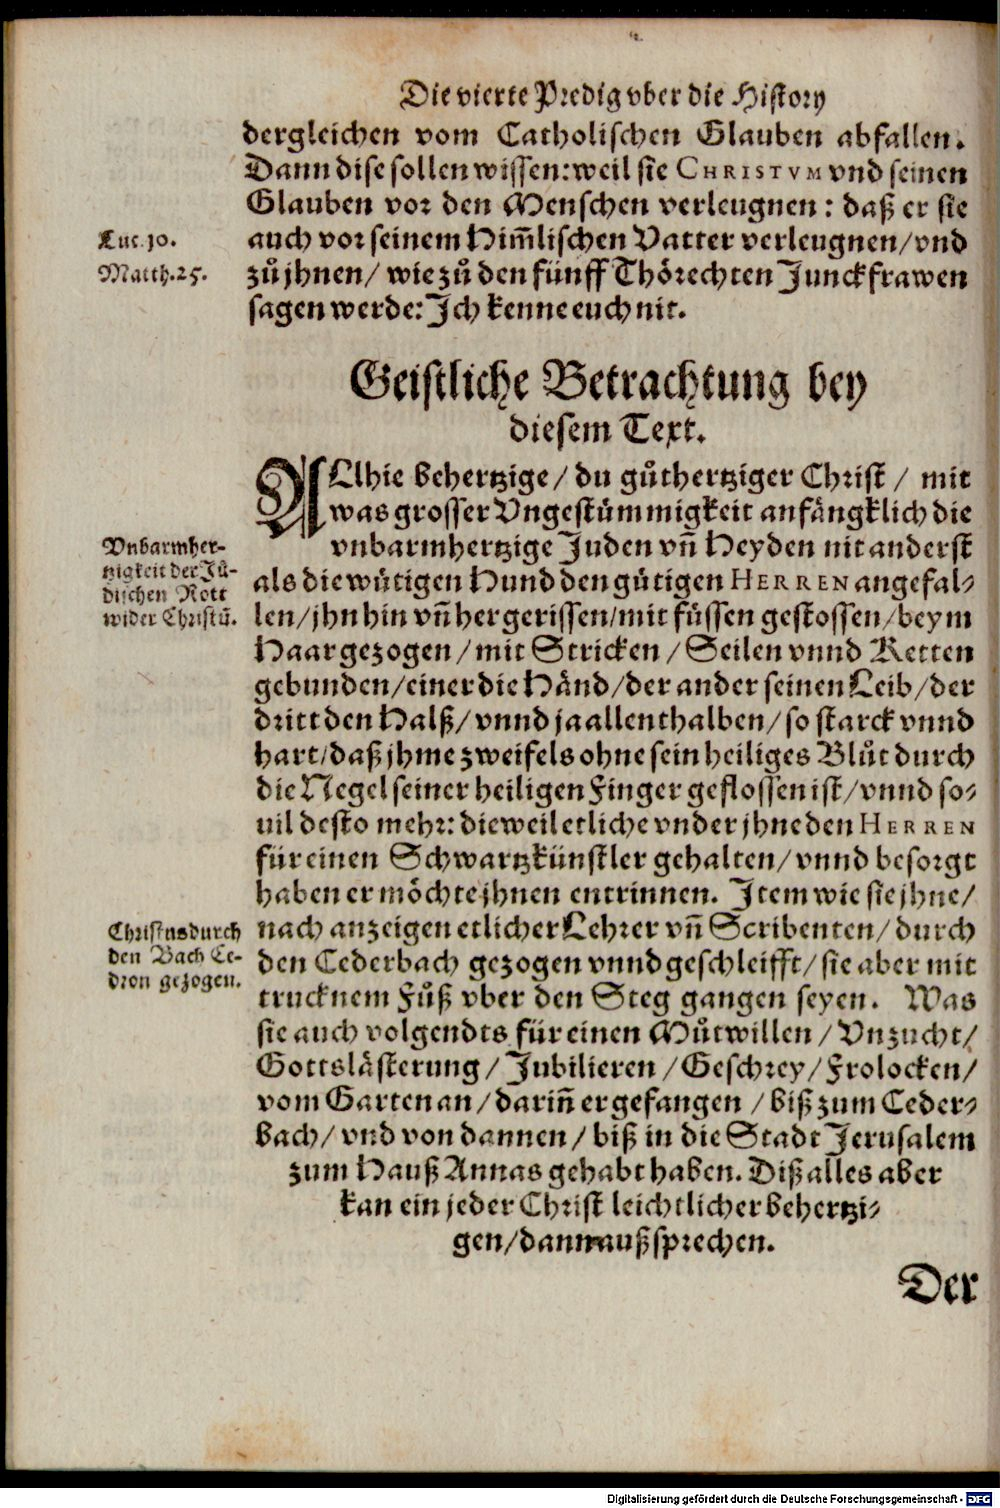 Die vierte Predig vber die History
dergleichen vom Catholischen Glauben abfallen.
Dann dise sollen wissen: weil sie CHRISTVM vnd seinen
Glauben vor den Menschen verleugnen: daß er sie
Luc. 10.
auch vor seinem Him̃lischen Vatter verleugnen/ vnd
Matth. 25.
zů jhnen/ wie zů den fünff Thörechten Junckfrawen
sagen werde: Ich kenne euch nit.
Geistliche Betrachtung bey
diesem Text.
ALlhie behertzige/ du gůthertziger Christ/ mit
was grosser Vngestümmigkeit anfängklich die
Vnbarmher-
tzigkeit der Jü-
dischen Rott
wider Christū.
vnbarmhertzige Juden vñ Heyden nit anderst
als die wütigen Hund den gütigen HERREN angefal-
len/ jhn hin vñ her gerissen/ mit füssen gestossen/ beym
Haar gezogen/ mit Stricken/ Seilen vnnd Ketten
gebunden/ einer die Händ/ der ander seinen Leib/ der
dritt den Halß/ vnnd ja allenthalben/ so starck vnnd
hart/ daß jhme zweifels ohne sein heiliges Blůt durch
die Negel seiner heiligen Finger geflossen ist/ vnnd so-
uil desto mehr: dieweil etliche vnder jhne den HERREN
für einen Schwartzkünstler gehalten/ vnnd besorgt
haben er möchte jhnen entrinnen. Item wie sie jhne/
Christus durch
den Bach Ce-
dron gezogen.
nach anzeigen etlicher Lehrer vñ Scribenten/ durch
den Cederbach gezogen vnnd geschleifft/ sie aber mit
trucknem Fůß vber den Steg gangen seyen. Was
sie auch volgendts für einen Můtwillen/ Vnzucht/
Gottslästerung/ Jubilieren/ Geschrey/ Frolocken/
vom Garten an/ dariñ er gefangen/ biß zum Ceder-
bach/ vnd von dannen/ biß in die Stadt Jerusalem
zum Hauß Annas gehabt haben. Diß alles aber
kan ein jeder Christ leichtlicher behertzi-
gen/ dann außsprechen.
Der
Digitalisierung gefördert durch die Deutsche Forschungsgemeinschaft - DFG